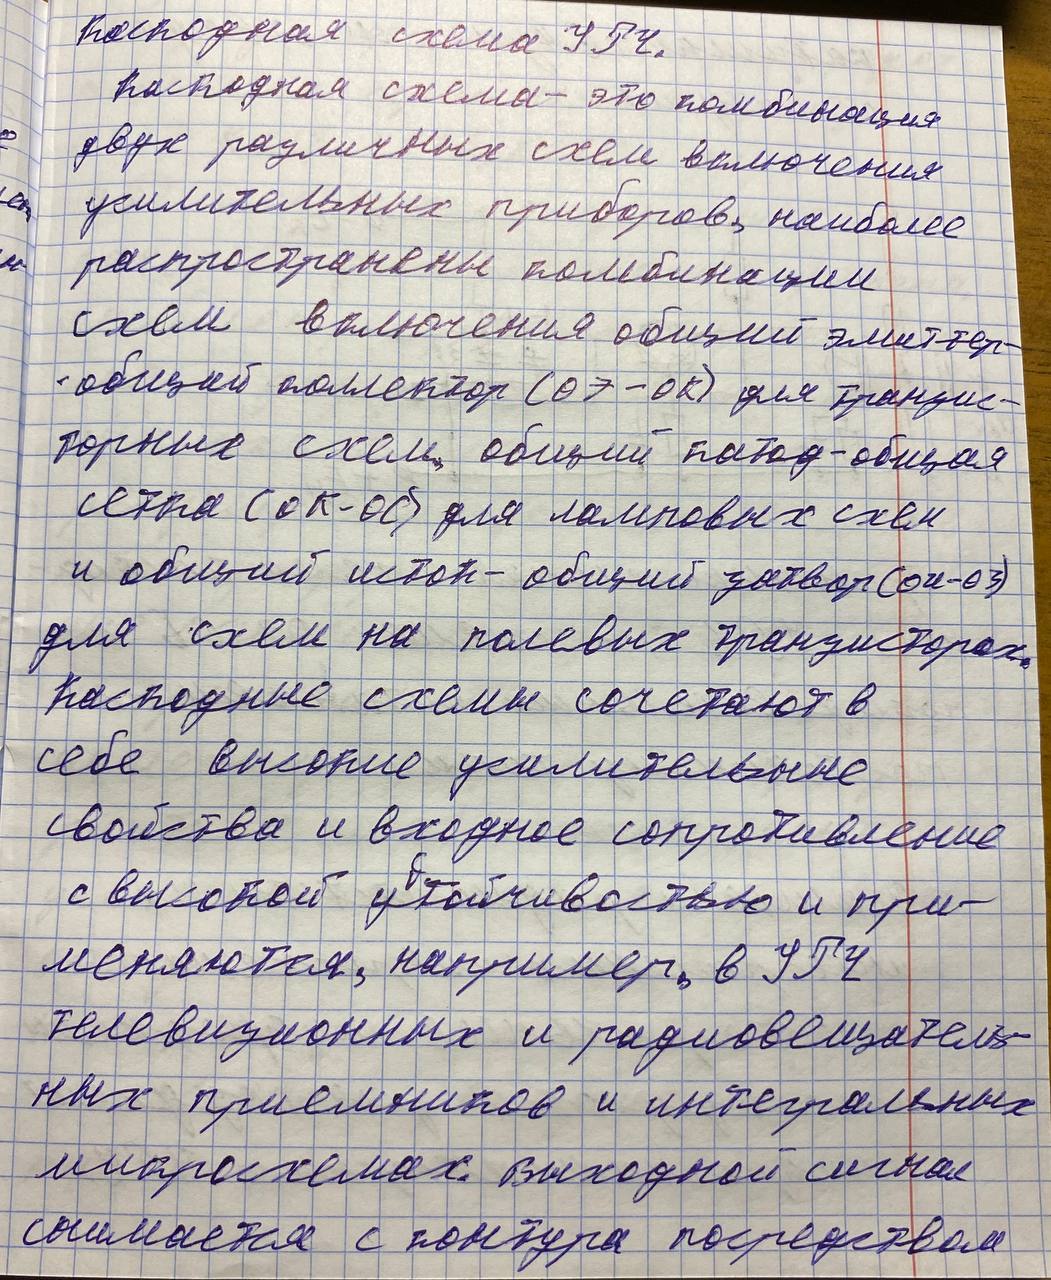 Каскодная схема УРЧ.
Каскодная схема – это комбинация
двух различных схем включения
усилительных приборов, наиболее
распространены комбинации
схем включения общий эмиттер-
-общий коллектор (ОЭ-ОК) для транзис-
торных схем, общий катод-общая
сетка (ОК-ОС) для ламповых схем
и общий исток-общий затвор (ОИ-ОЗ)
для схем на полевых транзисторах.
Каскодные схемы сочетают в
себе высокие усилительные
свойства и входное сопротивление
с высокой устойчивостью и при-
меняются, например, в УРЧ
телевизионных и радиовещатель-
ных приемников и интегральных
микросхемах. Выходной сигнал
снимается с контура посредством